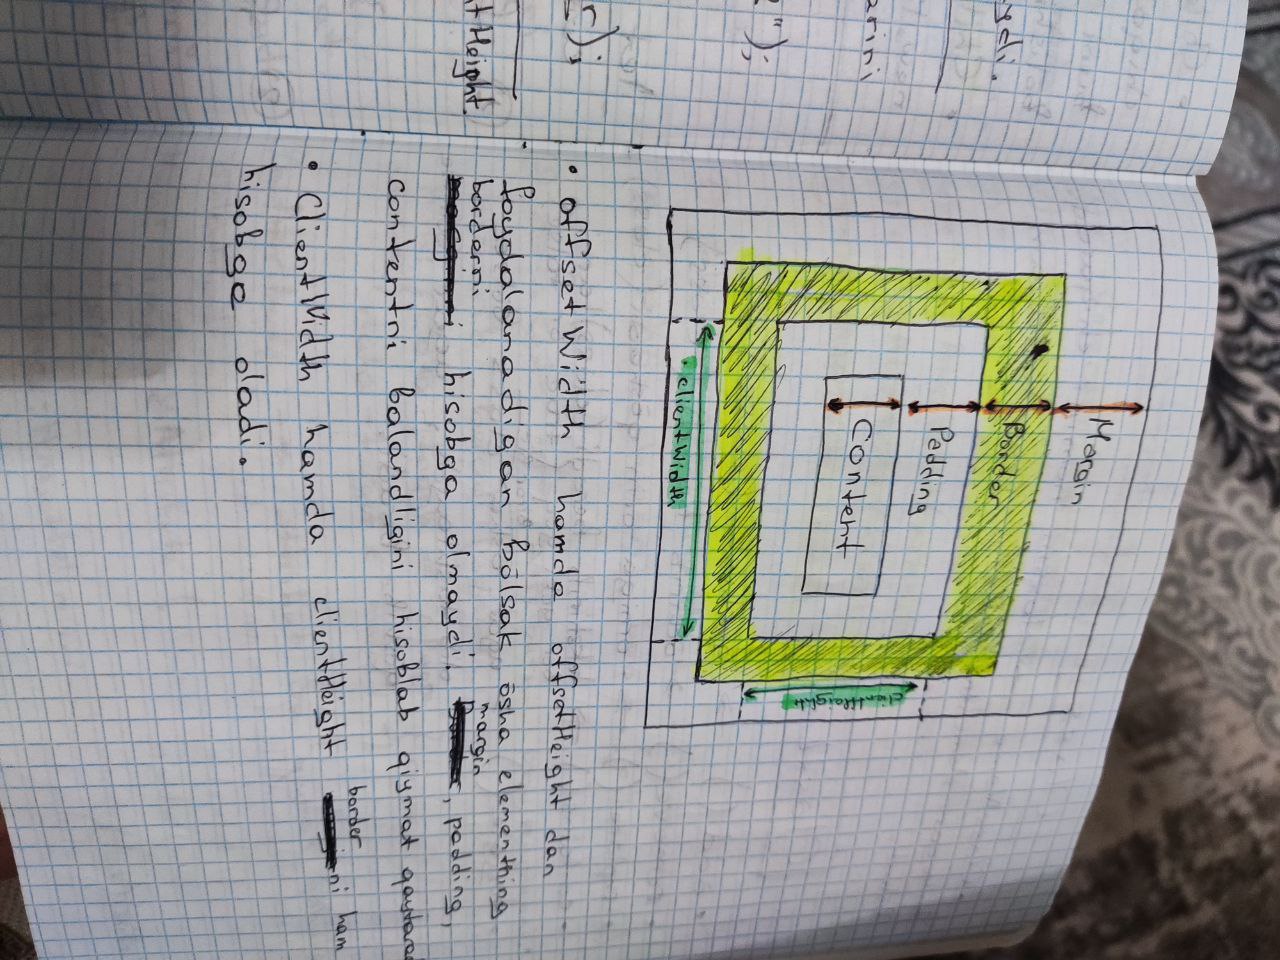 ydi.
arini
");
r);
tHeight
Margin
Border
Padding
Content
clientWidth
clientHeight
• offsetWidth hamda offsetHeight dan
foydalanadigan bõlsak õsha elementning
borderni hisobga olmaydi. margin, padding,
contentni balandligini hisoblab qiymat
• ClientWidth hamda clientHeight border ni ham
hisobga oladi.